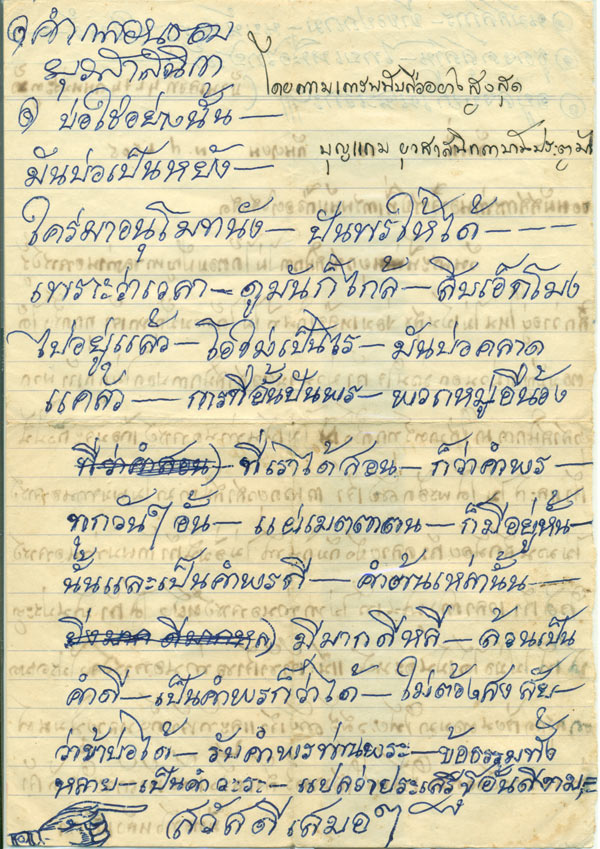 ๑ คำกลอนตอบ
ยุวสาสนิกา
โดยความเคารพนับถืออย่างสูงสุด
๑ บ่อใช่อย่างนั้น —
บุญแถม ยุวสาสนิกา
มันบ่อเป็นหยัง —
ใคร่มาอนุโมทนัง — ปันพรให้ได้ - - - -
เพราะว่าเวลา — ดูมันก็ใกล้ — สิบเอ็ดโมง
ไปอยู่แล้ว — โอ๊ะไม่เป็นไร — มันบ่อคลาด
แคล้ว — การที่อั้นปันพร — พวกหมู่อื่นน้อง
ที่เราได้สอน — ก็ว่าคำพร —
ทุกวันๆ อั้น — แผ่เมตตาตน — ก็มีอยู่หั้น —
นั้นและเป็นคำพรดี — คำต้นเหล่านั้น —
มีมากดีหลี — ล้วนเป็น
คำดี — เป็นคำพรก็ว่าได้ — ไม่ต้องสงสัย —
ว่าข้าบ่อได้ — รับคำพรท่านพระ — ข้อธรรมทั้ง
หลาย — เป็นคำวะระ — แปลว่าประเสริฐอันดีงาม
สวัสดีเสมอๆ